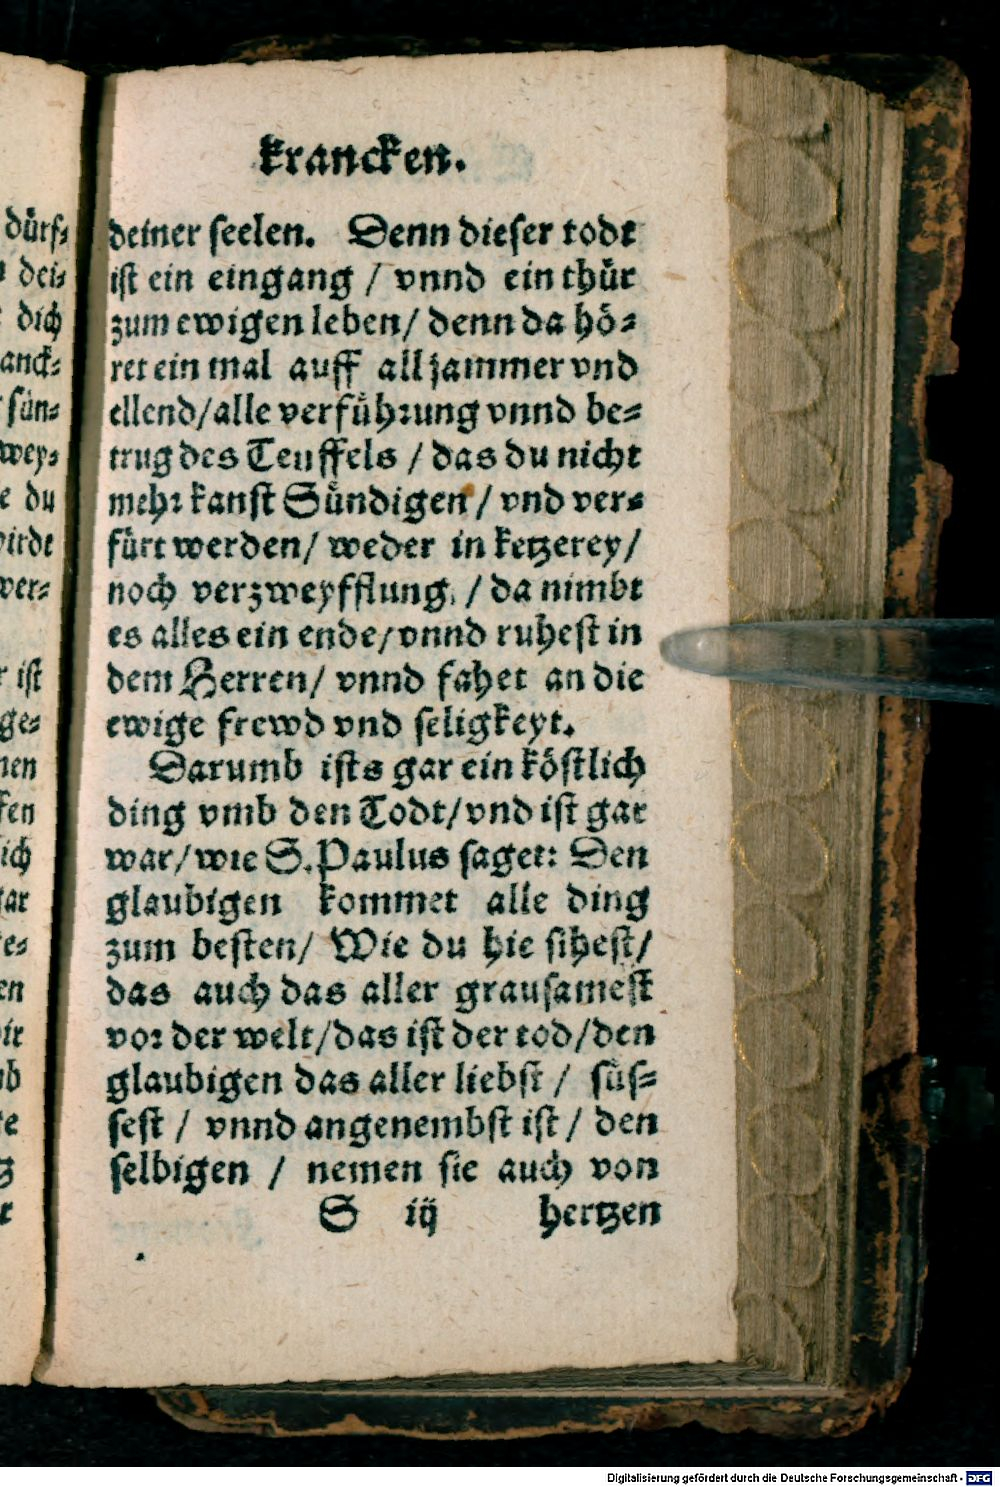 krancken.
deiner seelen. Denn dieser todt
ist ein eingang / vnnd ein thür
zum ewigen leben/ denn da hö-
ret ein mal auff all jammer vnd
ellend/alle verführung vnnd be-
trug des Teuffels / das du nicht
mehr kanst Sündigen / vnd ver-
fürt werden/ weder in ketzerey/
noch verzweyfflung, / da nimbt
es alles ein ende/vnnd ruhest in
dem Herren/ vnnd fahet an die
ewige frewd vnd seligkeyt.
Darumb ists gar ein köstlich
ding vmb den Todt/vnd ist gar
war/wie S. Paulus saget: Den
glaubigen kommet alle ding
zum besten/ Wie du hie sihest/
das auch das aller grausamest
vor der welt/das ist der tod/den
glaubigen das aller liebst / süs-
sest / vnnd angenembst ist / den
selbigen / nemen sie auch von
S iij hertzen
dürf-
dei-
dich
anck-
sün-
wey-
e du
wirde
ver-
r ist
ge-
nen
ken
lich
gar
te-
en
wir
Digitalisierung gefördert durch die Deutsche Forschungsgemeinschaft - DFG